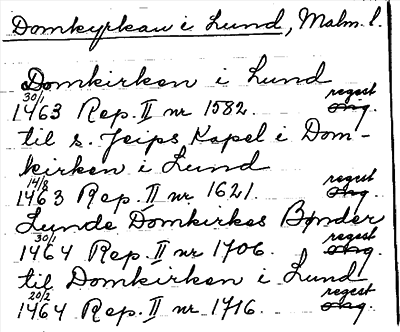 Domkyrkan i Lund, Malm. l.
Domkirken i Lund
30/1 1463 Rep. II nr 1582. regest orig.
til s. Jeips Kapel i Dom-
kirken i Lund
14/8 1463 Rep. II nr 1621. regest orig.
Lunde Domkirkes Bønder
30/1 1464 Rep. II nr 1706. regest orig.
til Domkirken i Lund
20/2 1464 Rep. II nr 1716. regest orig.